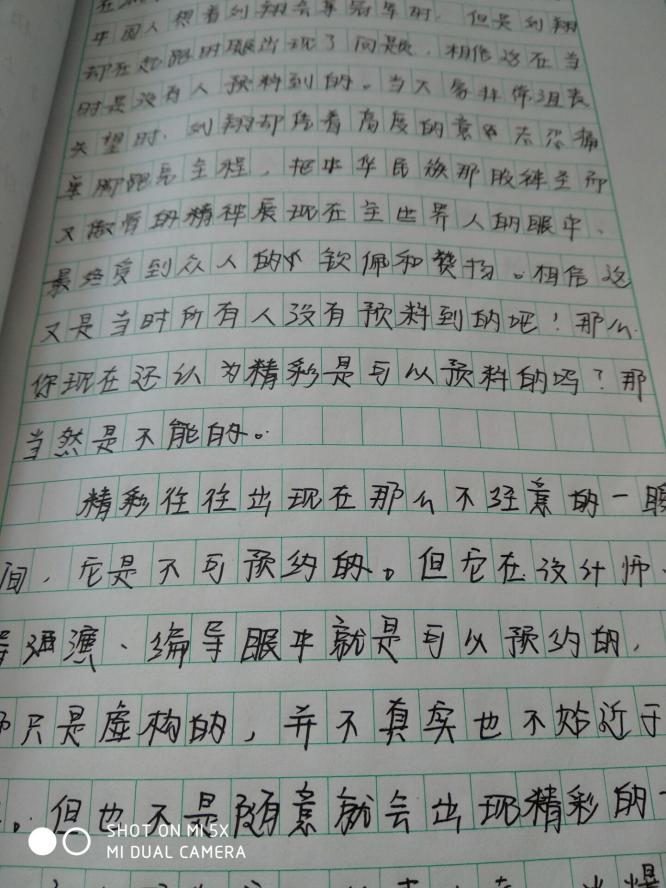 中国人想着刘翔会拿冠军时，但是刘翔
却在起跑时跟出现了问题，相信这在当
时是没有人预料到的。当大家
失望时，刘翔却凭着高度的意 忍痛
单脚跑完全程，把中华民族那股
又傲骨的精神展现在全世界人的眼中，
最终受到众人的 钦佩和赞扬。相信这
又是当时所有人没有预料到的吧！那么
你现在还认为精彩是可以预料的吗？那
当然是不能的。
精彩往往出现在那么不经意的一瞬
间，它是不可预约的。但它在设计师、
导演、编导眼中就是可以预约的，
只是虚构的，并不真实也不 近于
。但也不是随意就会出现精彩的
SHOT ON MI 5X
MI DUAL CAMERA